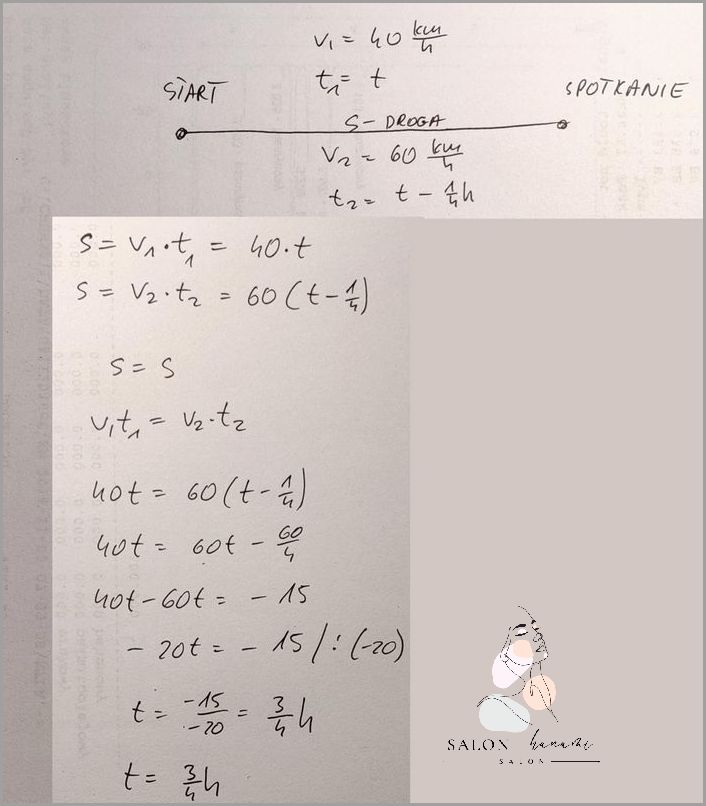 v₁ = 40 km/h
t₁ = t
START
SPOTKANIE
S - DROGA
v₂ = 60 km/h
t₂ = t - 1/4 h
S = v₁·t₁ = 40·t
S = v₂·t₂ = 60(t - 1/4)
S = S
v₁t₁ = v₂·t₂
40t = 60(t - 1/4)
40t = 60t - 60/4
40t - 60t = - 15
- 20t = - 15 /:(-20)
t = -15/-20 = 3/4 h
t = 3/4 h
SALON hanami
SALON